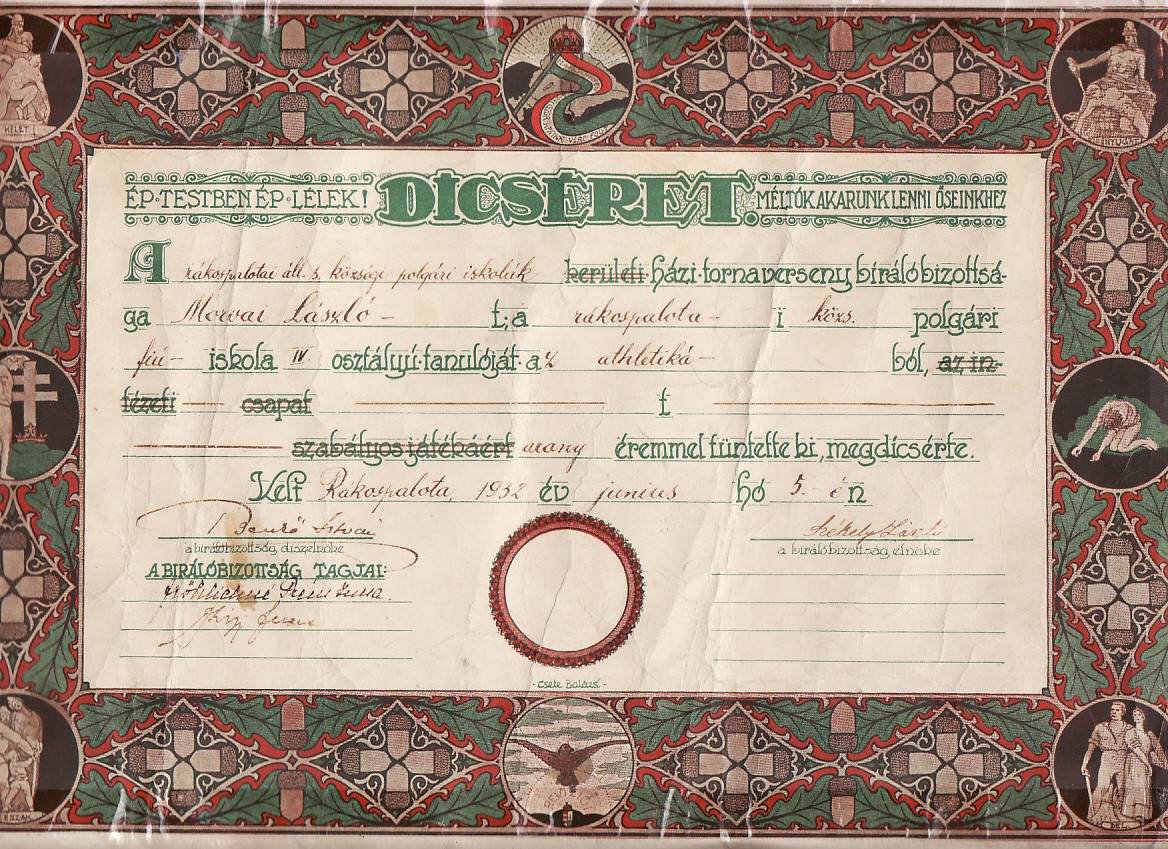 KELET
NYUGAT
ÉP · TESTBEN ÉP · LÉLEK! DÍCSÉRET. MÉLTÓK AKARUNK LENNI ŐSEINKHEZ
A rákospalotai áll. s. községi polgári iskolák kerületi házi-tornaverseny bírálóbizottsá-
ga Morvai László – t; a rákospalota – i közs. polgári
fiú – iskola IV. osztályú tanulóját a z athletiká – ból, az in-
tézeti — csapat — t —
— szabályos játékáért arany éremmel tüntette ki, megdicsérte.
Kelt Rákospalota, 1932 év junius hó 5. - én
Benkő István Székely László
a bírálóbizottság díszelnöke a bírálóbizottság elnöke
A BIRÁLÓBIZOTTSÁG TAGJAI:
Ferenc
- Csete Balázs. -
ÉSZAK
DÉL